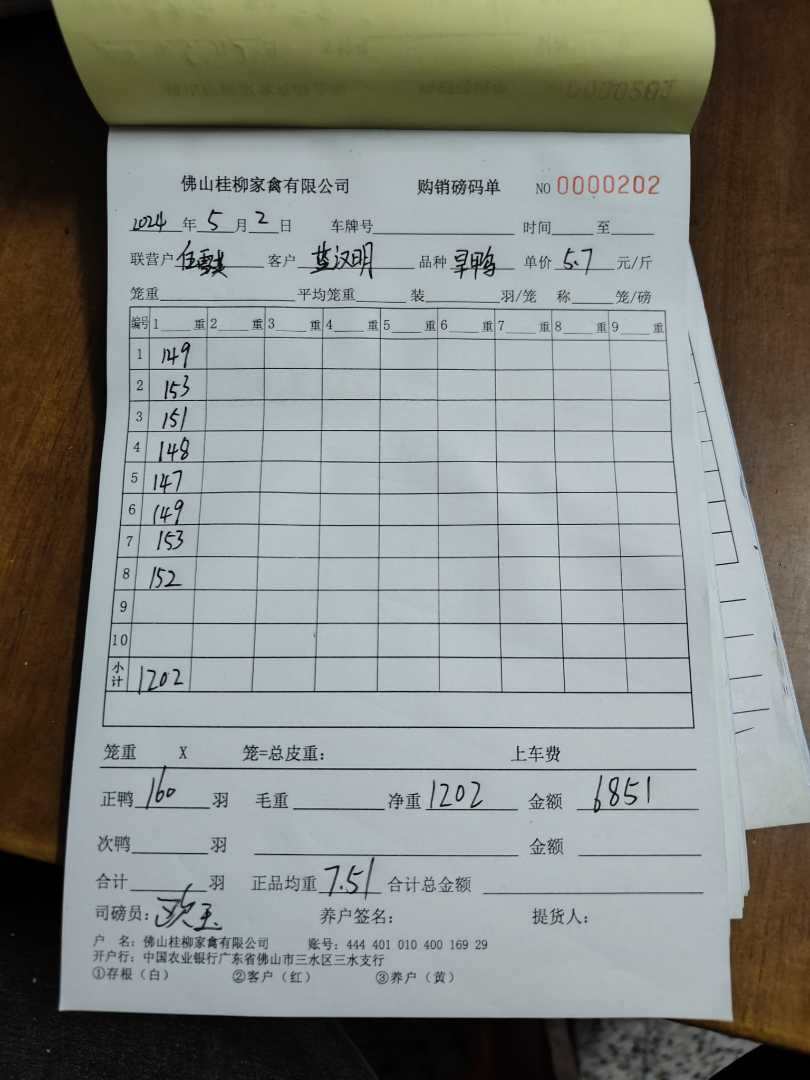 佛山桂柳家禽有限公司 购销磅码单 NO 0000202
2024年5月2日 车牌号 时间 至
联营户 任 客户 蓝汉明 品种 旱鸭 单价 5.7 元/斤
笼重 平均笼重 装 羽/笼 称 笼/磅
编号 1 重 2 重 3 重 4 重 5 重 6 重 7 重 8 重 9 重
1 149
2 153
3 151
4 148
5 147
6 149
7 153
8 152
9
10
小计 1202
笼重 X 笼=总皮重: 上车费
正鸭 160 羽 毛重 净重 1202 金额 6851
次鸭 羽 金额
合计 羽 正品均重 7.51 合计总金额
司磅员: 欧玉 养户签名: 提货人:
户 名: 佛山桂柳家禽有限公司 账号: 444 401 010 400 169 29
开户行: 中国农业银行广东省佛山市三水区三水支行
①存根(白) ②客户(红) ③养户(黄)